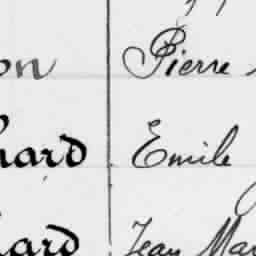 on Pierre
hard Emile
hard Jean Mar